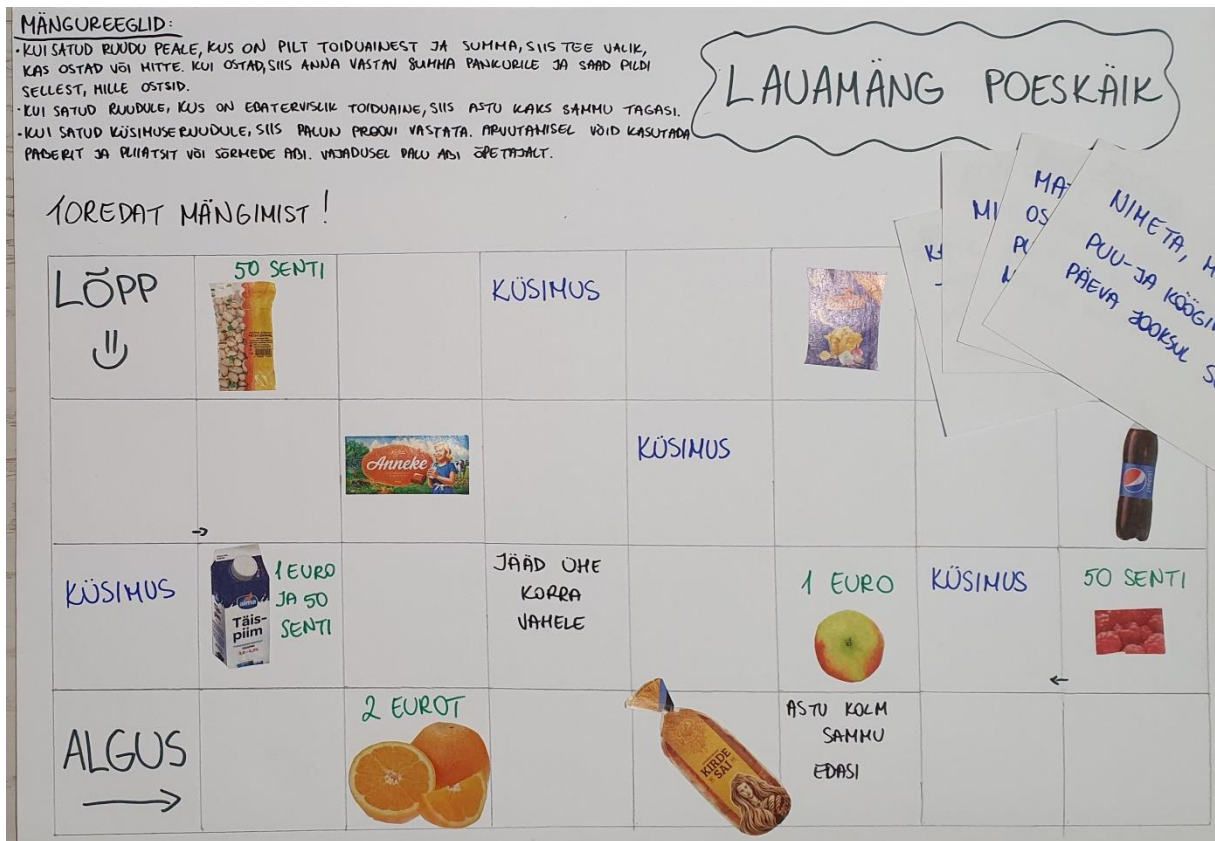 MÄNGUREEGLID:
•KUI SATUD RUUDU PEALE, KUS ON PILT TOIDUAINEST JA SUMMA, SIIS TEE VALIK,
KAS OSTAD VÕI MITTE. KUI OSTAD, SIIS ANNA VASTAV SUMMA PANKURILE JA SAAD PILDI
SELLEST, MILLE OSTSID.
•KUI SATUD RUUDULE, KUS ON EBATERVISLIK TOIDUAINE, SIIS ASTU KAKS SAMMU TAGASI.
•KUI SATUD KÜSIMUSE RUUDULE, SIIS PALUN PROOVI VASTATA. ARVUTAMISEL VÕID KASUTADA
PABERIT JA PLIIATSIT VÕI SÕRMEDE ABI. VAJADUSEL PALU ABI ÕPETAJALT.
LAUAMÄNG POESKÄIK
TOREDAT MÄNGIMIST!
MI
MA
OS
PU
NIMETA, M
PUU-JA KÖÖGI
PÄEVA JOOKSUL S
LÕPP
50 SENTI
KÜSIMUS
Anneke
KÜSIMUS
KÜSIMUS
alma
Täis-
piim
1 EURO
JA 50
SENTI
JÄÄD ÜHE
KORRA
VAHELE
1 EURO
KÜSIMUS
50 SENTI
ALGUS
2 EUROT
KIRDE
SAI
ASTU KOLM
SAMMU
EDASI